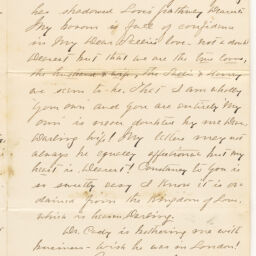 has shadowed Love's pathway Dearest
My bosom is full of confidence
in My Dear Sallie's love. not a doubt
Dearest but that we are the true lovers,
the husband & wife, the Sallie & Henry
we seem to be. That I am wholly
your own and you are entirely My
own is never doubted by me Dear,
Darling Wife! My letters may not
always be equally affectionate but my
heart is, Dearest! Constancy to you is
so sweetly easy I know it is or-
dained from the Kingdom of love,
which is heaven Darling.
Dr. Cady is bothering me with
business - wish he was in London!